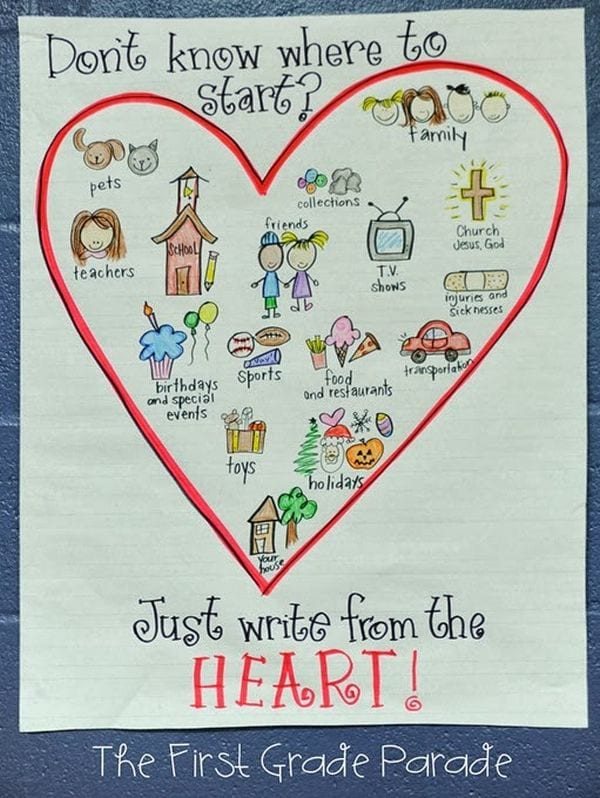 Don't know where to
start?
family
pets
collections
SCHOOL
friends
Church
Jesus, God
teachers
T.V.
shows
injuries and
sicknesses
birthdays
and special
events
sports
food
and restaurants
transportation
toys
holidays
Your
house
Just write from the
HEART!
The First Grade Parade